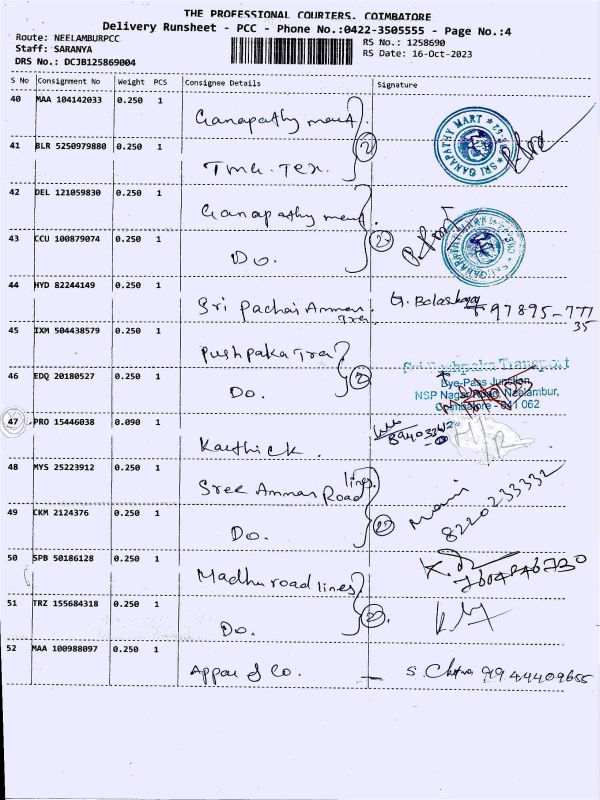 THE PROFESSIONAL COURIERS, COIMBATORE
Delivery Runsheet - PCC - Phone No.:0422-3505555 - Page No.:4
Route: NEELAMBURPCC
Staff: SARANYA
DRS No.: DCJB125869004
RS No.: 1258690
RS Date: 16-Oct-2023
S No Consignment No Weight PCS Consignee Details Signature
40 MAA 104142033 0.250 1 Ganapathy mart.
SRI GANAPATHY MART
41 BLR 5250979880 0.250 1 Tma. Tex.
2
42 DEL 121059830 0.250 1 Ganapathy mart.
43 CCU 100879074 0.250 1 Do.
2
44 HYD 82244149 0.250 1 Sri Pachai Amman Tra
97895-777
35
45 IXM 504438579 0.250 1 Pushpaka Tra
46 EDQ 20180527 0.250 1 Do.
2
Sri Pushpaka Transport
Bye-Pass Junction,
NSP Nagar Road, Neelambur,
Coimbatore - 641 062
47 PRO 15446038 0.090 1 Karthick.
48 MYS 25223912 0.250 1 Sree Amman Road lines.
Mani
8220233332
49 CKM 2124376 0.250 1 Do.
2
50 SPB 50186128 0.250 1 Madhu road lines.
51 TRZ 155684318 0.250 1 Do.
2
52 MAA 100988097 0.250 1 Appar & Co.